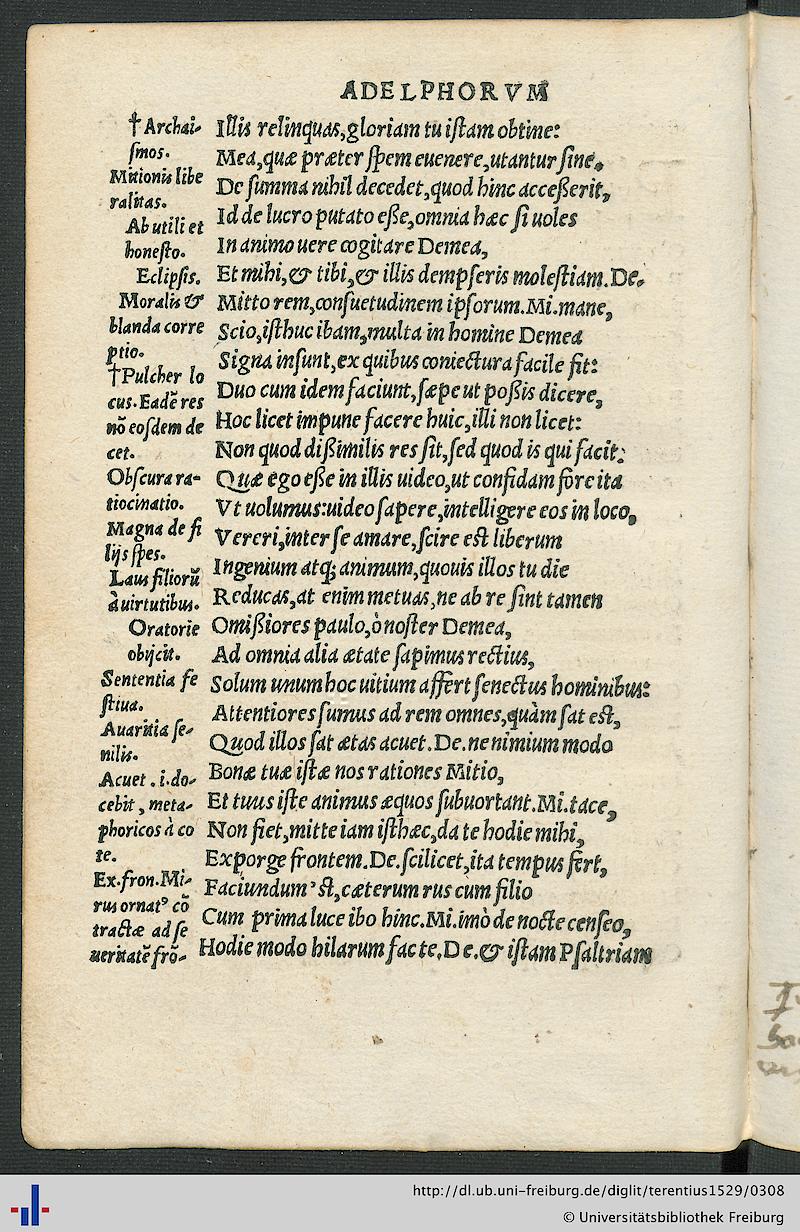 ADELPHORVM
† Archai-
smos.
Mitionis libe
ralitas.
Ab utili et
honesto.
Eclipsis.
Moralis &
blanda corre
ptio.
†Pulcher lo
cus. Eadē res
nō eosdem de
cet.
Obscura ra-
tiocinatio.
Magna de fi
lijs spes.
Laus filiorū
à uirtutibus.
Oratorie
obijcit.
Sententia fe
stiua.
Auaritia se-
nilis.
Acuet .i. do-
cebit, meta-
phoricos à co
te.
Ex.fron.Mi-
rus ornatꝰ cō
tractæ ad se
ueritatē frō-
Illis relinquas, gloriam tu istam obtine:
Mea, quæ præter spem euenere, utantur sine.
De summa nihil decedet, quod hinc accesserit,
Id de lucro putato esse, omnia hæc si uoles
In animo uere cogitare Demea,
Et mihi, & tibi, & illis dempseris molestiam. De.
Mitto rem, consuetudinem ipsorum. Mi. mane,
Scio, isthuc ibam, multa in homine Demea
Signa insunt, ex quibus coniectura facile fit:
Duo cum idem faciunt, sæpe ut possis dicere,
Hoc licet impune facere huic, illi non licet:
Non quod dissimilis res sit, sed quod is qui facit:
Quæ ego esse in illis uideo, ut confidam fore ita
Vt uolumus: uideo sapere, intelligere eos in loco,
Vereri, inter se amare, scire est liberum
Ingenium atq; animum, quouis illos tu die
Reducas, at enim metuas, ne ab re sint tamen
Omissiores paulo, ò noster Demea,
Ad omnia alia ætate sapimus rectius,
Solum unum hoc uitium affert senectus hominibus:
Attentiores sumus ad rem omnes, quàm sat est,
Quod illos sat ætas acuet. De. ne nimium modo
Bonæ tuæ istæ nos rationes Mitio,
Et tuus iste animus æquos subuortant. Mi. tace,
Non fiet, mitte iam isthæc, da te hodie mihi,
Exporge frontem. De. scilicet, ita tempus fert,
Faciundum'st, cæterum rus cum filio
Cum prima luce ibo hinc. Mi. imò de nocte censeo,
Hodie modo hilarum fac te. De. & istam Psaltriam
http://dl.ub.uni-freiburg.de/diglit/terentius1529/0308
© Universitätsbibliothek Freiburg